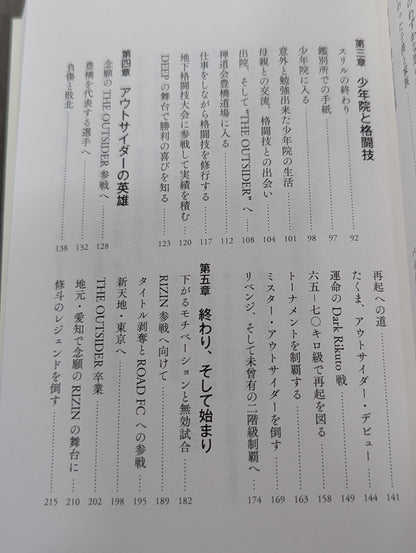 第三章 少年院と格闘技
スリルの終わり 92
鑑別所での手紙 97
少年院に入る 98
意外と勉強出来た少年院の生活 101
母親との交流、格闘技との出会い 104
出院、そして"THE OUTSIDER"へ 108
禅道会豊橋道場に入る 112
仕事をしながら格闘技を修行する 117
地下格闘技大会に参戦して実績を積む 120
DEEPの舞台で勝利の喜びを知る 123
第四章 アウトサイダーの英雄
念願のTHE OUTSIDER参戦へ 128
豊橋を代表する選手へ 132
負傷と敗北 138
再起への道 141
たくま、アウトサイダー・デビュー 144
運命のDark Rikuto戦 149
六五―七〇キロ級で再起を図る 158
トーナメントを制覇する 163
ミスター・アウトサイダーを倒す 169
リベンジ、そして未曾有の二階級制覇へ 174
第五章 終わり、そして始まり
下がるモチベーションと無効試合 182
RIZIN参戦へ向けて 189
タイトル剥奪とROAD FCへの参戦 195
新天地・東京へ 198
THE OUTSIDER卒業 202
地元・愛知で念願のRIZINの舞台に 210
修斗のレジェンドを倒す 215